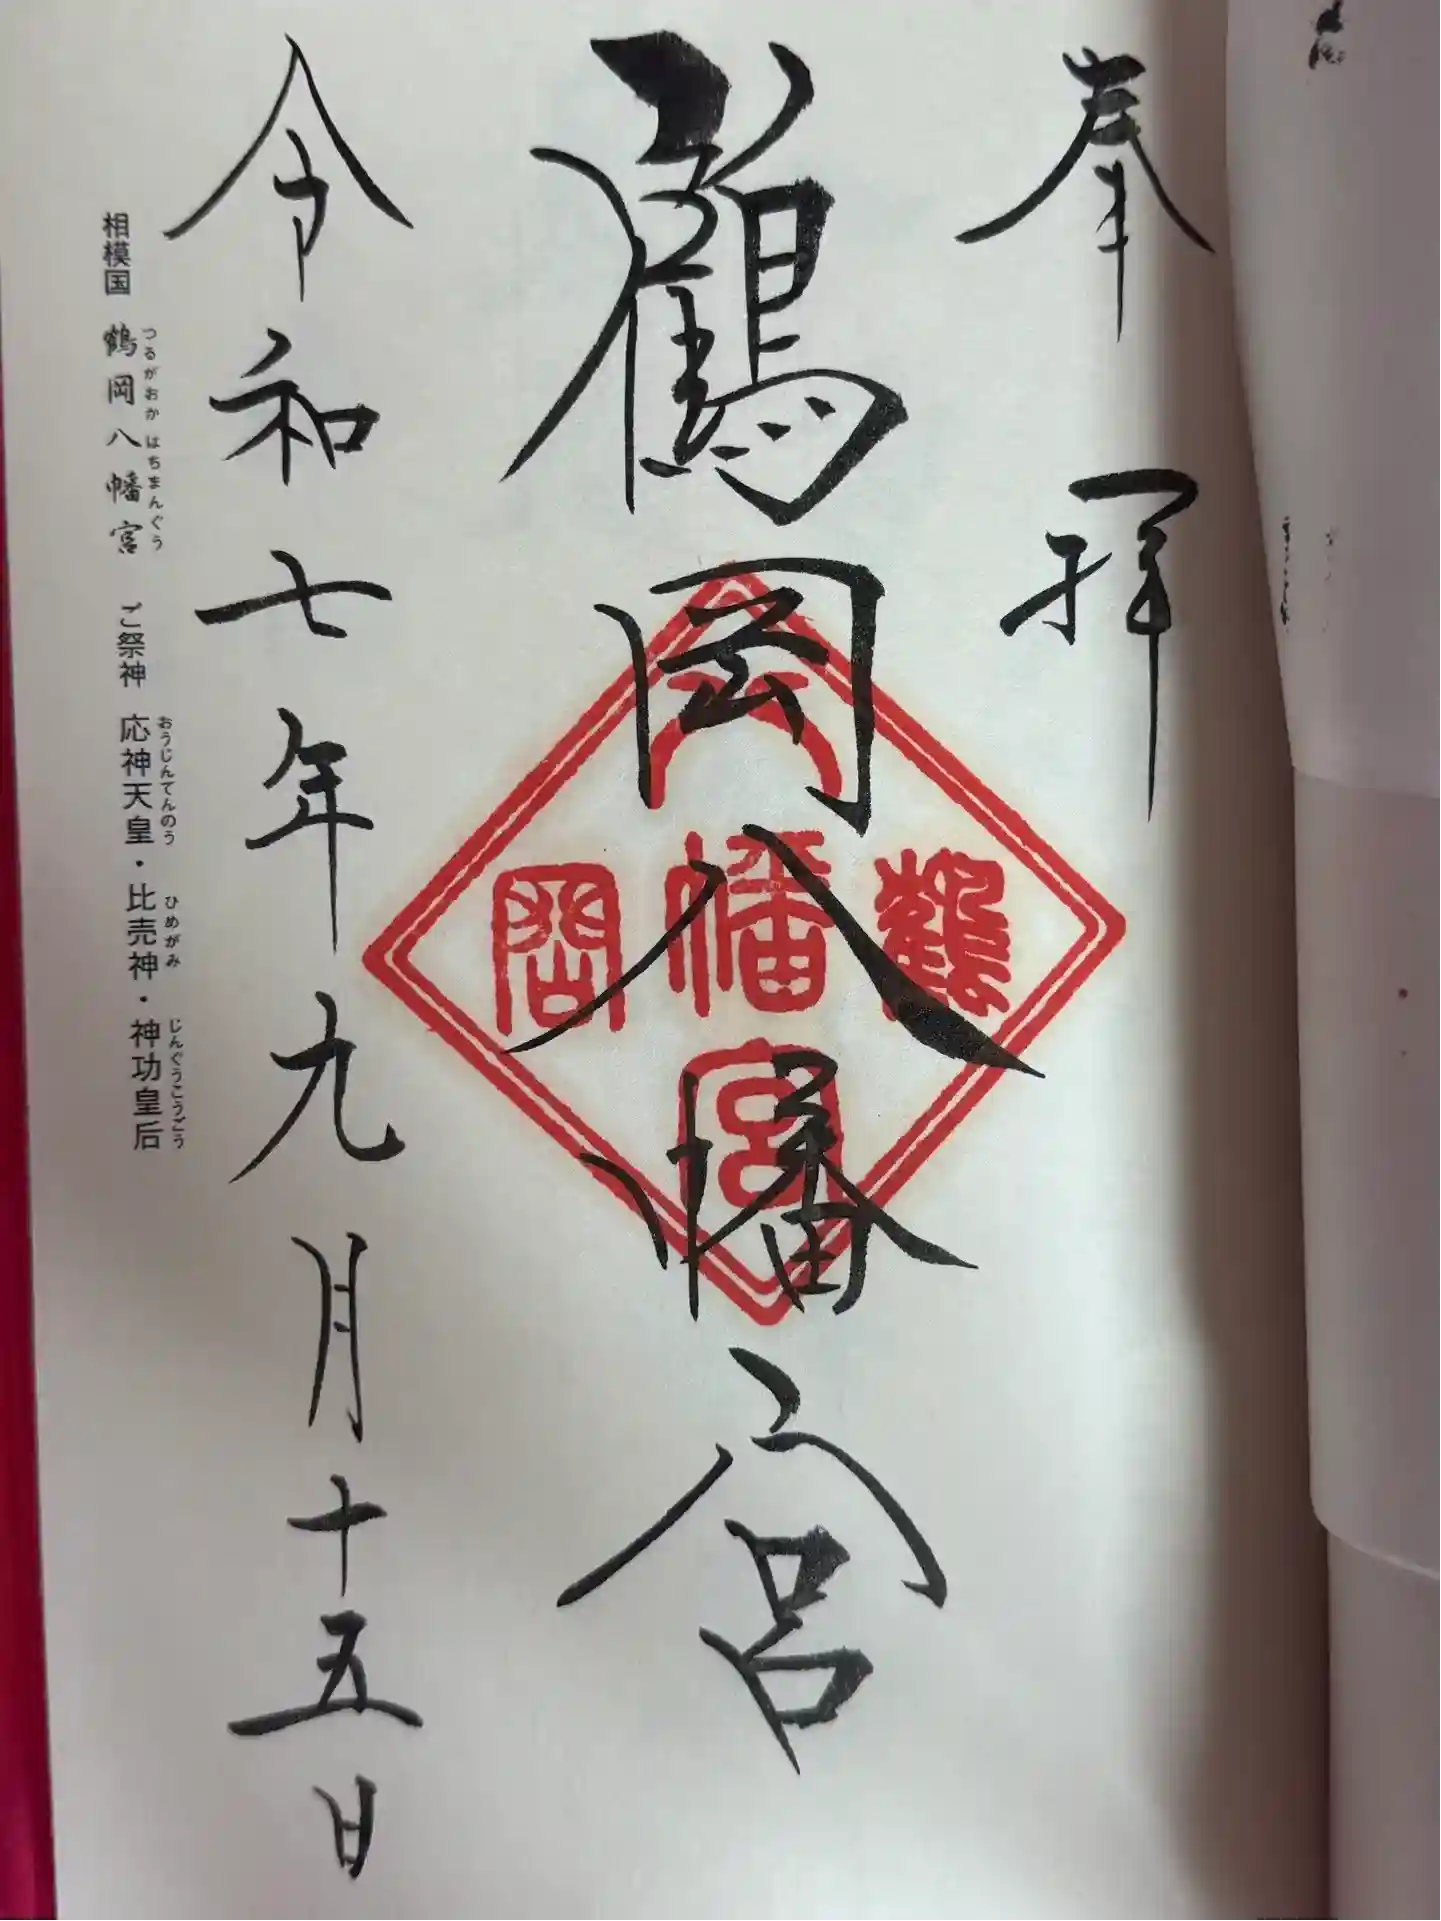 奉拝
鶴岡八幡宮
鶴
八幡宮
岡
令和七年九月十五日
つるがおか はちまんぐう おうじんてんのう ひめがみ じんぐうこうごう
相模国 鶴岡八幡宮 ご祭神 応神天皇・比売神・神功皇后